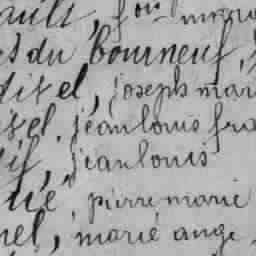 ault,
du bourneuf,
ditel, joseph mari
tel, jean louis fra
tif, jean louis
tie, pierre marie
nel, marie ange